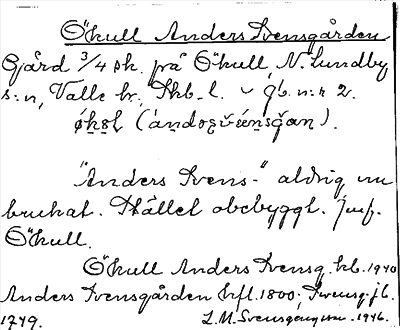 Ökull Anders Svensgården
Gård 3/4 sk. på Ökull, N. Lundby
s:n, Valle hr, Skb. l. ~ jb. n:r 2.
ökəl (ándəʂ svɛ́nsgan).
"Anders Svens-" aldrig nu
brukat. Stället obebyggt. Jmf.
Ökull.
Ökull Anders Svensg. kb. 1940
Anders Svensgården hfl. 1800; Swensg. jb.
1749. L. M. Svensgång 1946.